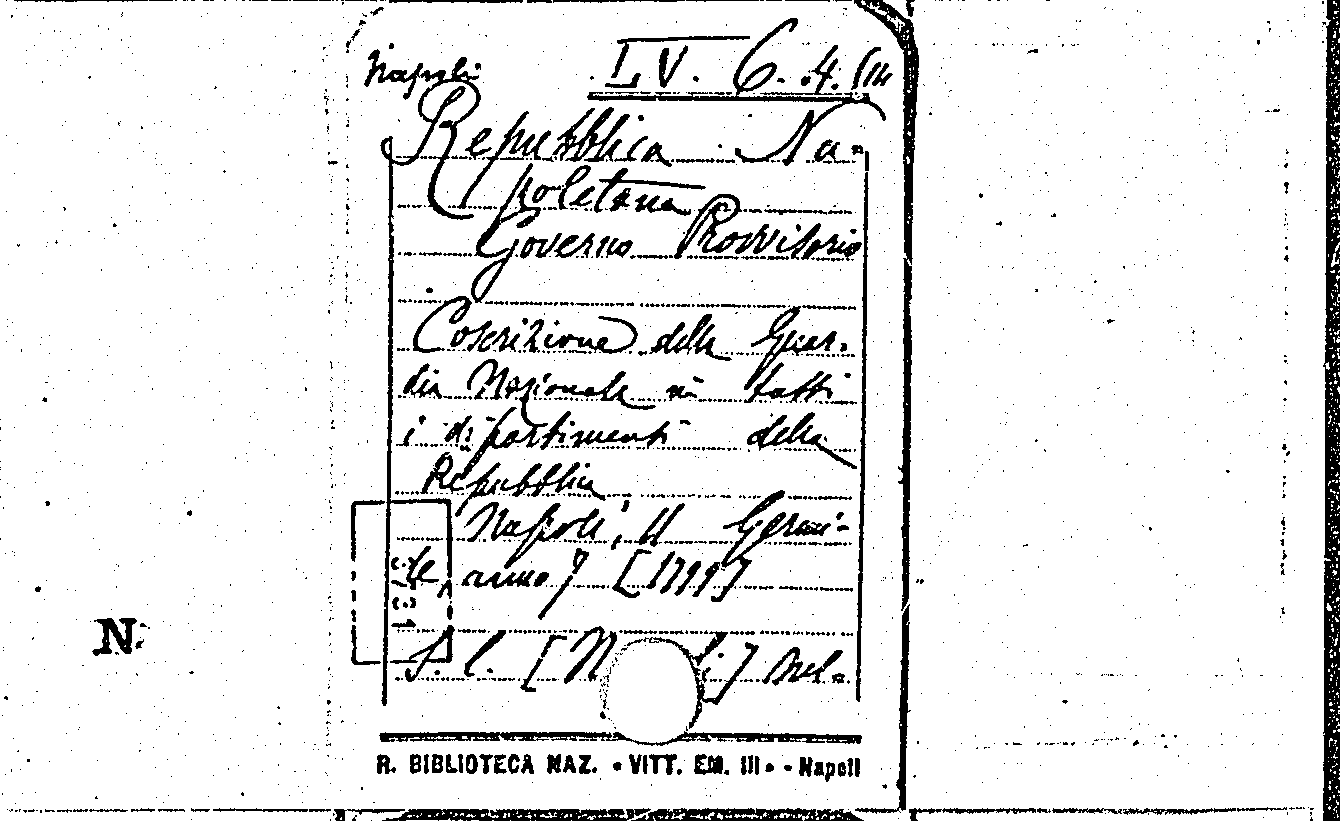 Napoli LV. 6. 4. (
Repubblica Na=
poletana
Governo Provvisorio
Coscrizione della Guar-
dia Nazionale in tutti
i dipartimenti della
Repubblica
Napoli, 11 Germi-
le, anno 7 [1799]
S. l. [N li] Nel=
N
R. BIBLIOTECA NAZ. • VITT. EM. III • - Napoli